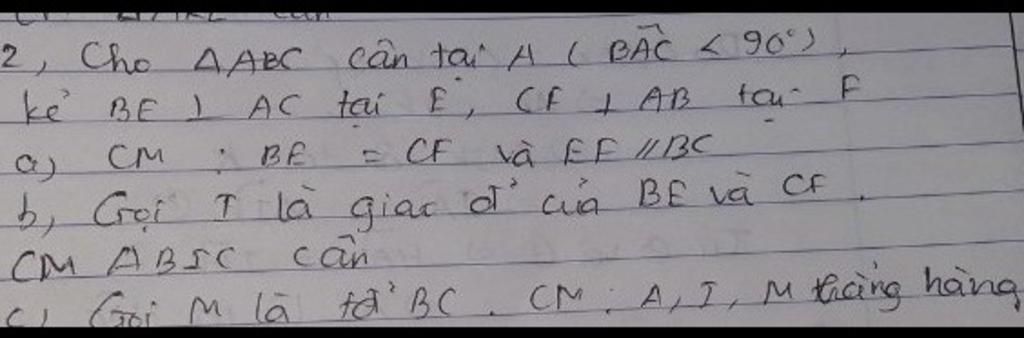 2, Cho ΔABC cân tại A ( BAC < 90°),
kẻ BE ⊥ AC tại E, CF ⊥ AB tại F
a) CM : BE = CF và EF // BC
b, Gọi I là giao đ' của BE và CF.
CM ΔBIC cân
c, Gọi M là tđ' BC. CM: A, I, M thẳng hàng